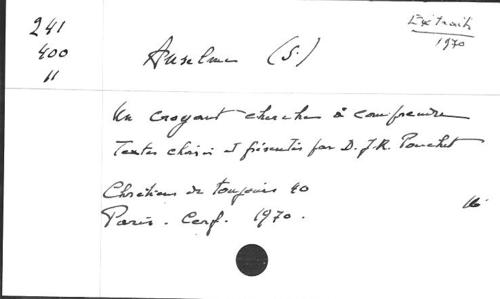 241
400
11
Extraits
1970
Anselme (S.)
Un croyant cherche à comprendre
Textes choisis et présentés par D. J.R. Pouchet
Chrétiens de toujours 40
Paris. Cerf. 1970.